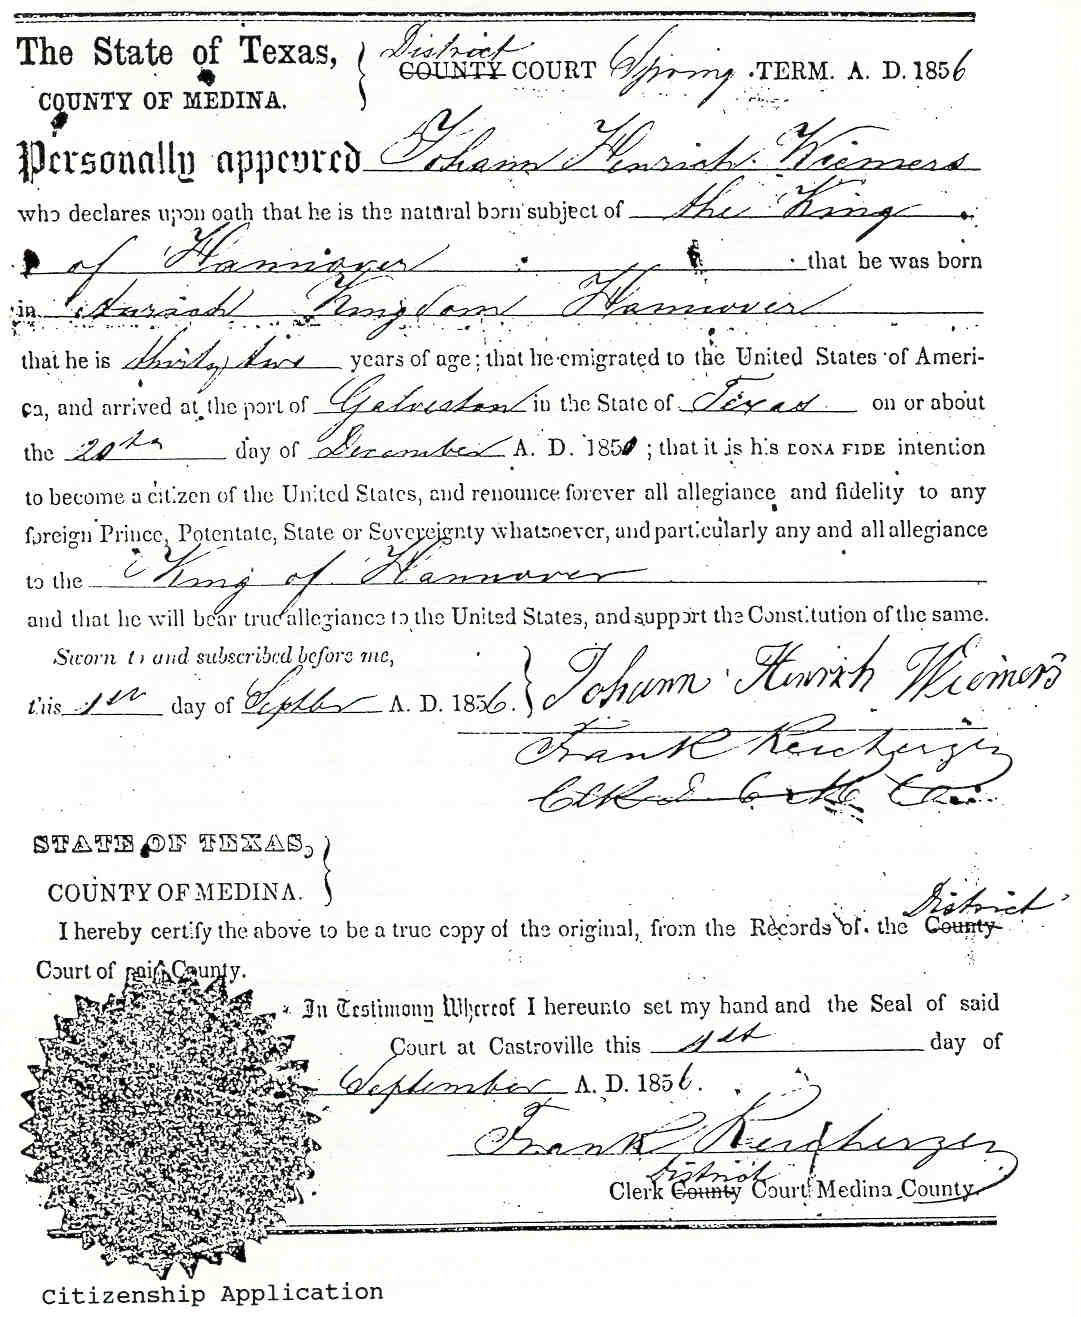 The State of Texas,
District
COUNTY COURT Spring TERM. A. D. 1856
COUNTY OF MEDINA.
Personally appeured Johann Hinrich Wiemers
who declares upon oath that he is the natural born subject of the King
of Hannover that he was born
in Aurich Kingdom Hannover
that he is thirty two years of age; that he emigrated to the United States of Ameri-
ca, and arrived at the port of Galveston in the State of Texas on or about
the 20th day of December A. D. 1850; that it is his BONA FIDE intention
to become a citizen of the United States, and renounce forever all allegiance and fidelity to any
foreign Prince, Potentate, State or Sovereignty whatsoever, and particularly any and all allegiance
to the King of Hannover
and that he will bear true allegiance to the United States, and support the Constitution of the same.
Sworn to and subscribed before me,
this 1st day of Septber A. D. 1856.
Johann Hinrich Wiemers
Frank Reicherzer
Clk D C M Co.
STATE OF TEXAS,
COUNTY OF MEDINA.
District
I hereby certify the above to be a true copy of the original, from the Records of the County
Court of said County.
In Testimony Whereof I hereunto set my hand and the Seal of said
Court at Castroville this 1st day of
September A. D. 1856.
Frank Reicherzer
District
Clerk County Court Medina County.
Citizenship Application